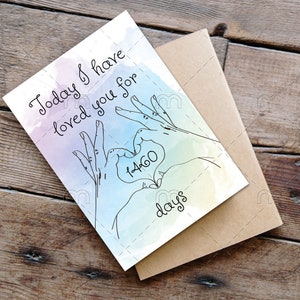 Today I have
loved you for
1460
days